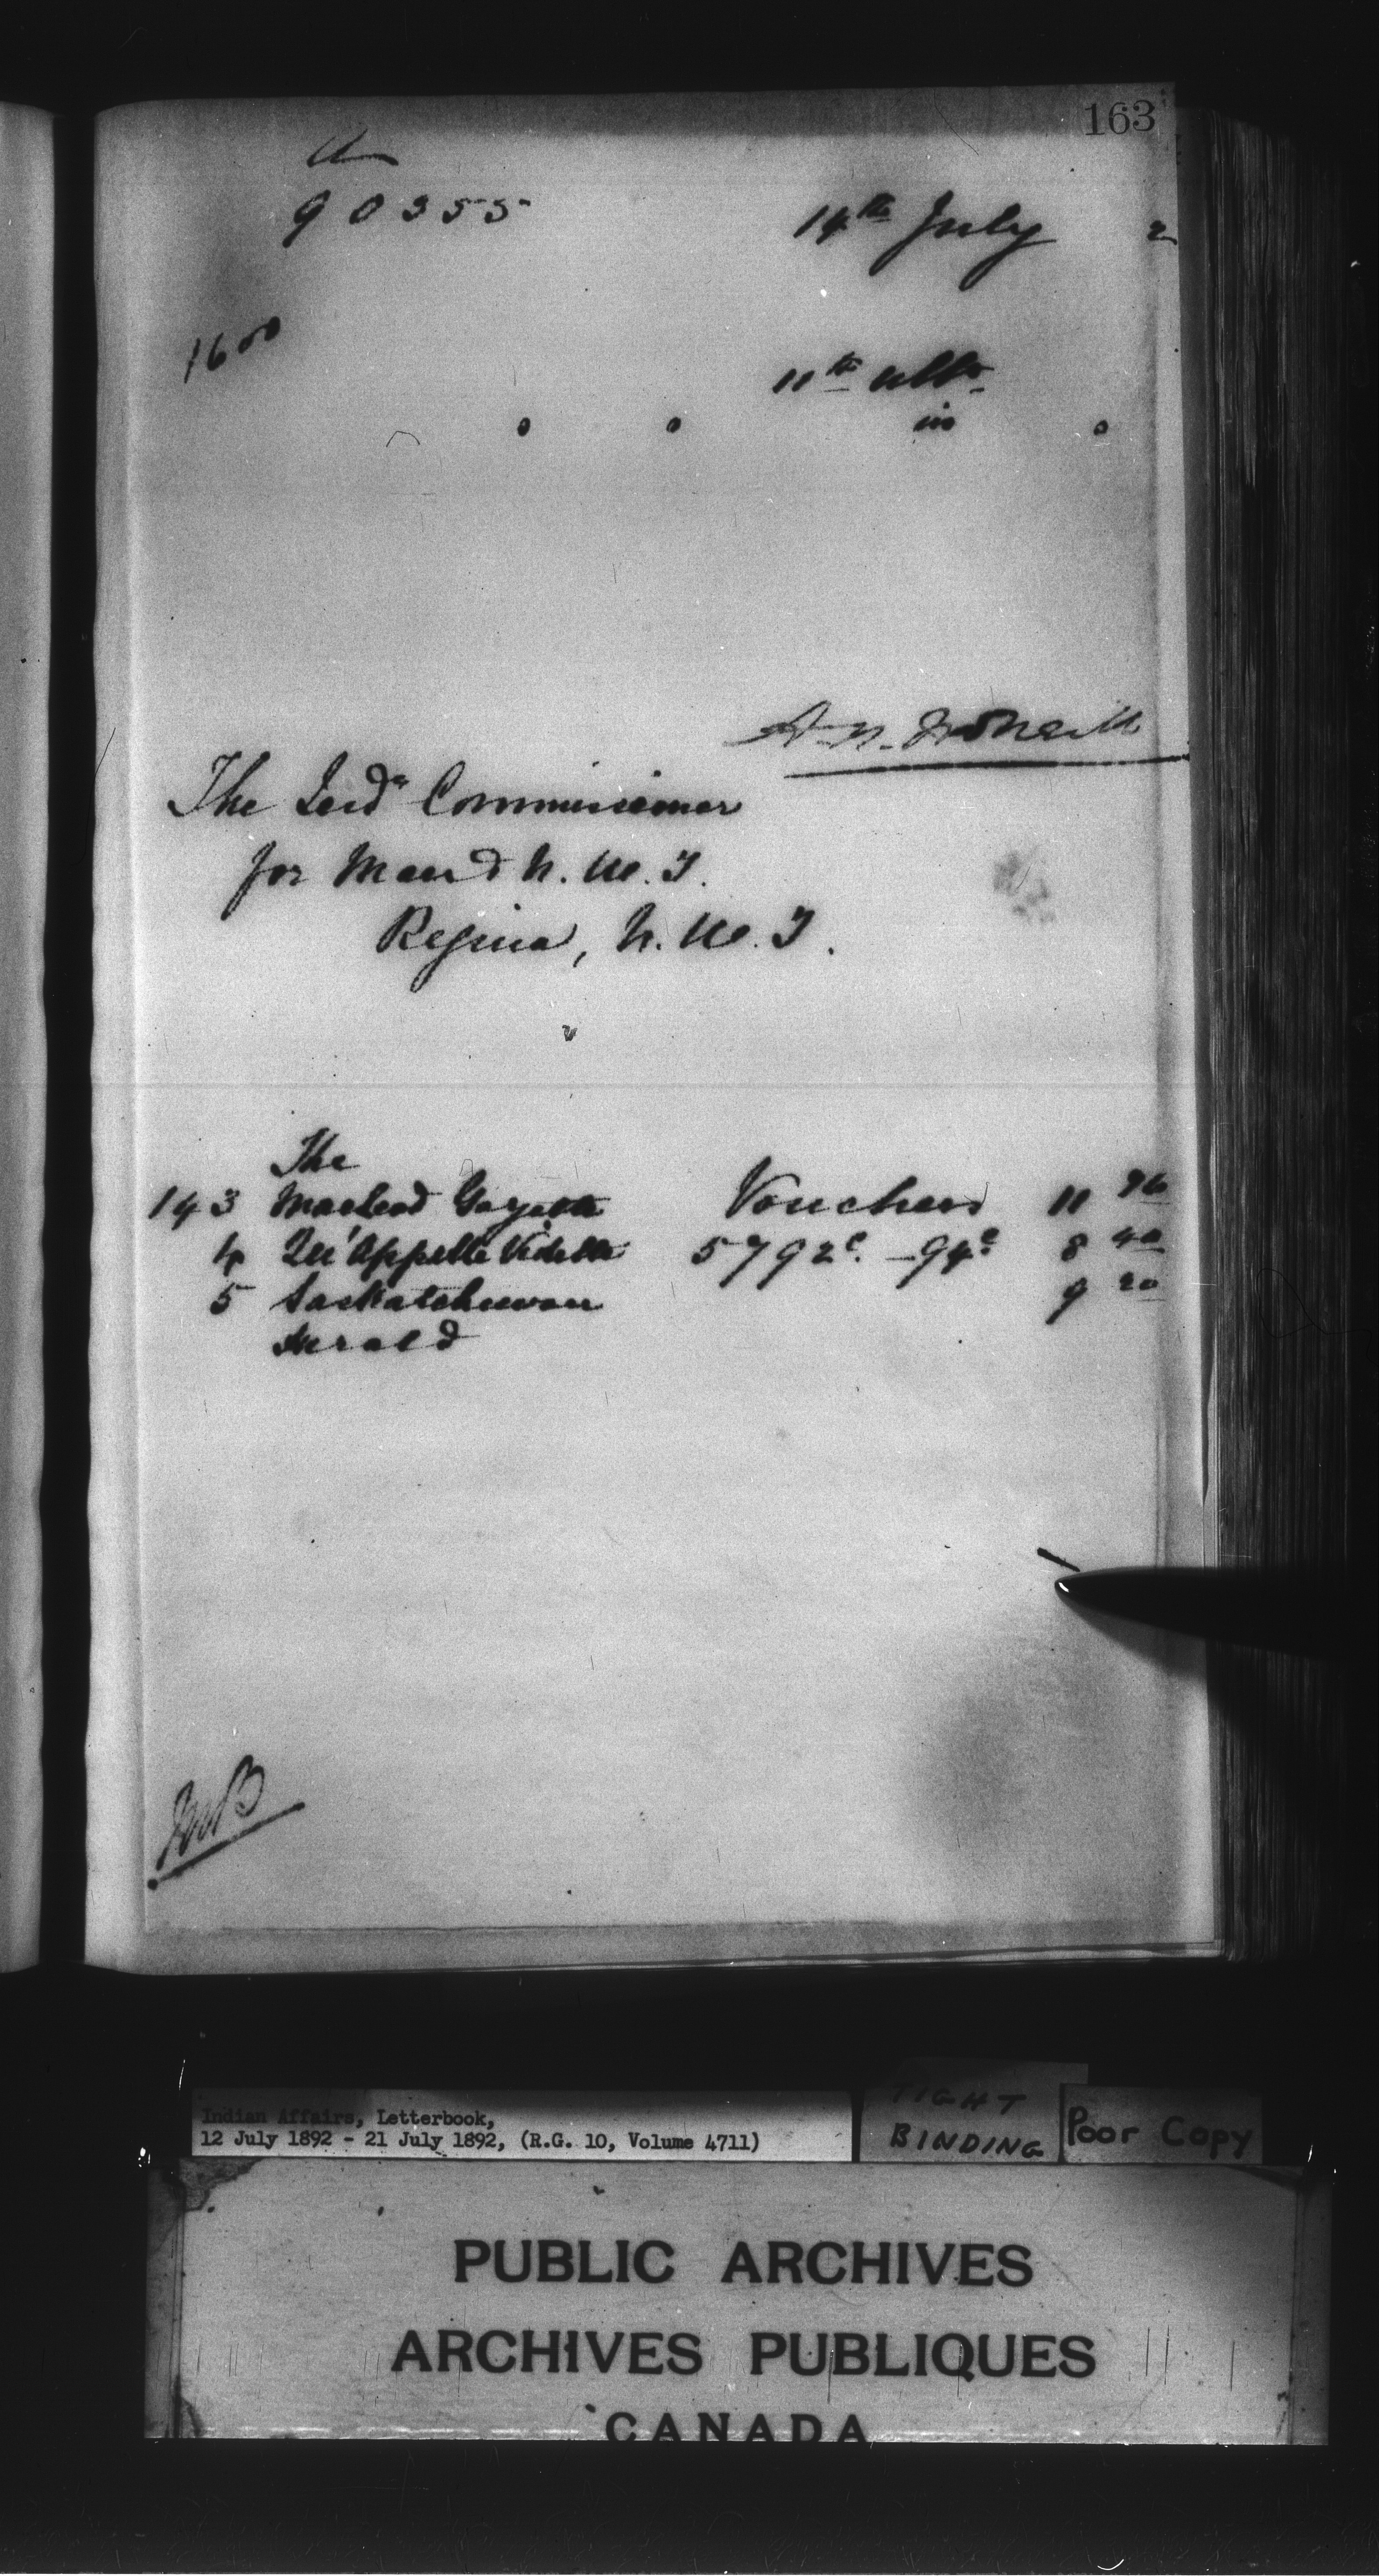 163
90355
14th July 2
1600
11th ulto
in
The Ind. Commissioner
for Man & N. W. T.
Regina, N. W. T.
The
143 Macleod Gazette Vouchers 11 76
4 Qu'Appelle Vidette 5792c. - 94c 8 40
5 Saskatchewan 9 20
Herald
Indian Affairs, Letterbook,
12 July 1892 - 21 July 1892, (R.G. 10, Volume 4711)
TIGHT
BINDING
Poor Copy
PUBLIC ARCHIVES
ARCHIVES PUBLIQUES
CANADA